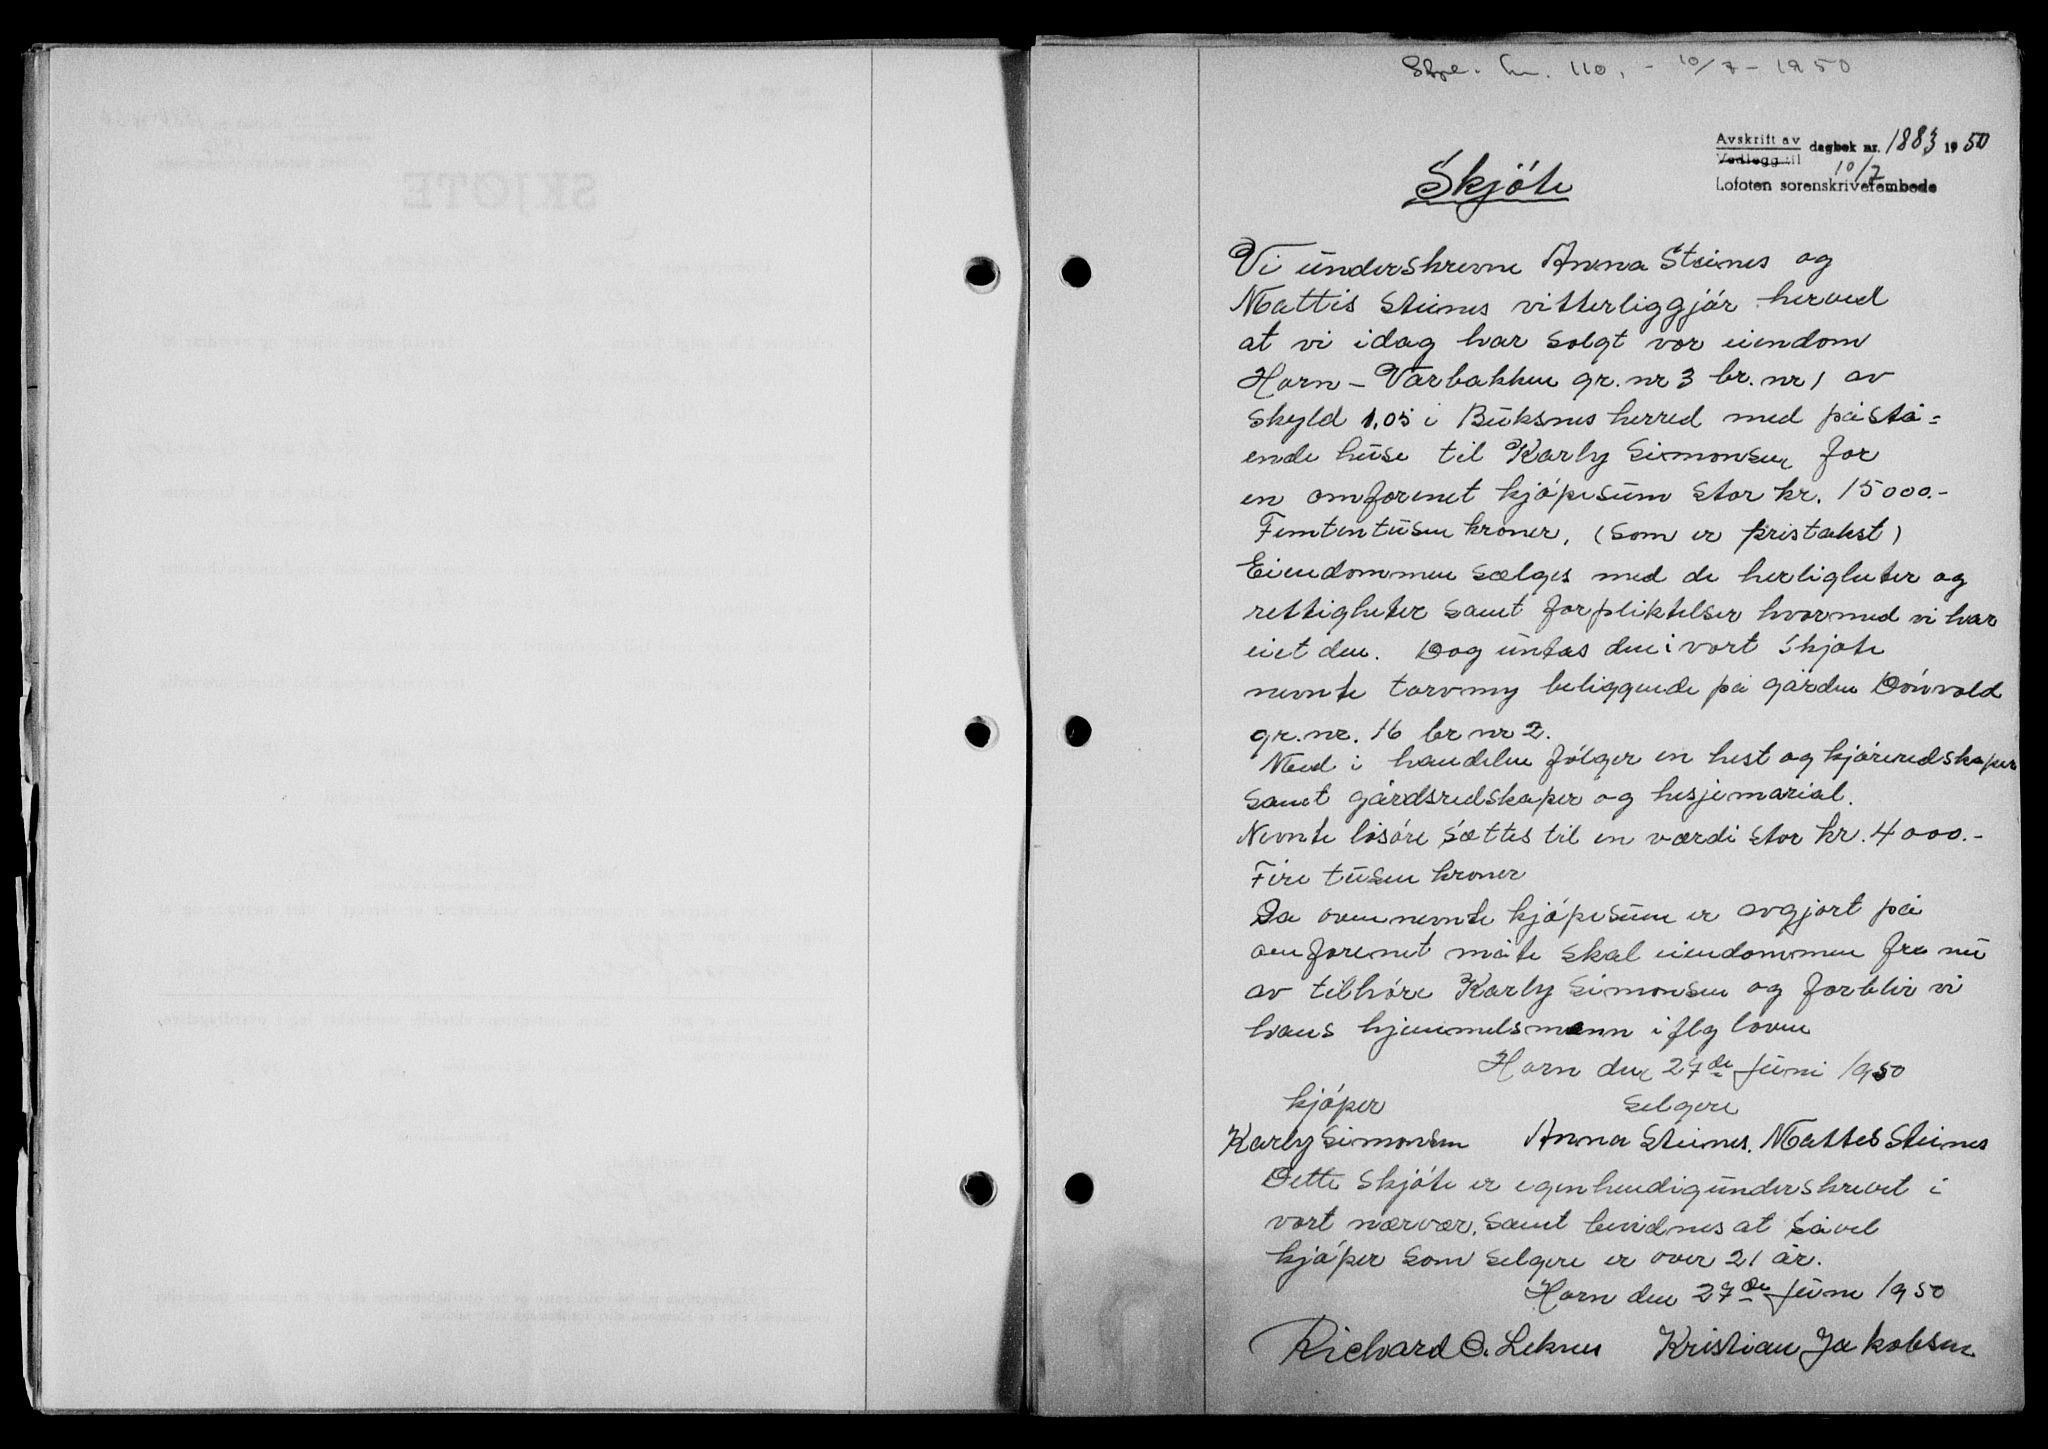 Stpl. kr. 110, - 10/7 - 1950
Avskrift av
Vedlegg til dagbok nr. 1883 1950
10/7
Lofoten sorenskriverembede
Skjöte
Vi underskrevne Anna Steines og
Mattis Steines vitterliggjör herved
at vi idag har solgt vor eiendom
Horn - Varbakken gr. nr 3 br. nr 1 av
skyld 1,05 i Buksnes herred med påstå-
ende huse til Karly Simonsen for
en omforenet kjöpesum stor kr. 15000.-
Femtentusen kroner, (som er pristakst)
Eiendommen sælges med de herligheter og
rettigheter samt forpliktelser hvormed vi har
eiet den. Dog untas den i vort skjöte
nevnte torvmy beliggende på gården
gr. nr. 16 br nr 2.
Med i handelen fölger en hest og kjöreredskaper
samt gårdsredskaper og hesjemarial.
Nevnte lösöre sættes til en værdi stor kr. 4000.-
Fire tusen kroner
Da ovennevnte kjöpesum er avgjort på
omforenet måte skal eiendommen fra nu
av tilhöre Karly Simonsen og forblir vi
hans hjemmelsmenn iflg loven
Horn den 27de Juni 1950
kjöper selgere
Karly Simonsen Anna Steines. Mattes Steines
Dette skjöte er egenhendig underskrevet i
vort nærvær, samt bevidnes at såvel
kjöper som selgere er over 21 år.
Horn den 27de Juni 1950
Richard O. Leknes Kristian Jakobsen
SKJØTE